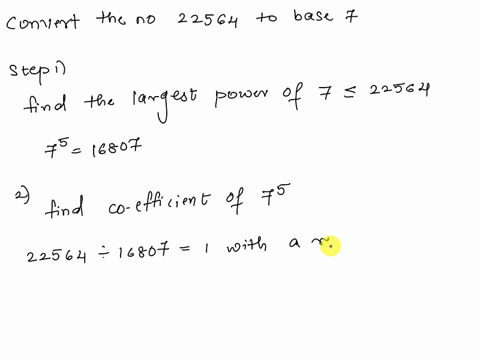 Convert the no 22564 to base 7
Step 1)
find the largest power of 7 ≤ 22564
7⁵ = 16807
2) find co-efficient of 7⁵
22564 ÷ 16807 = 1 with a r